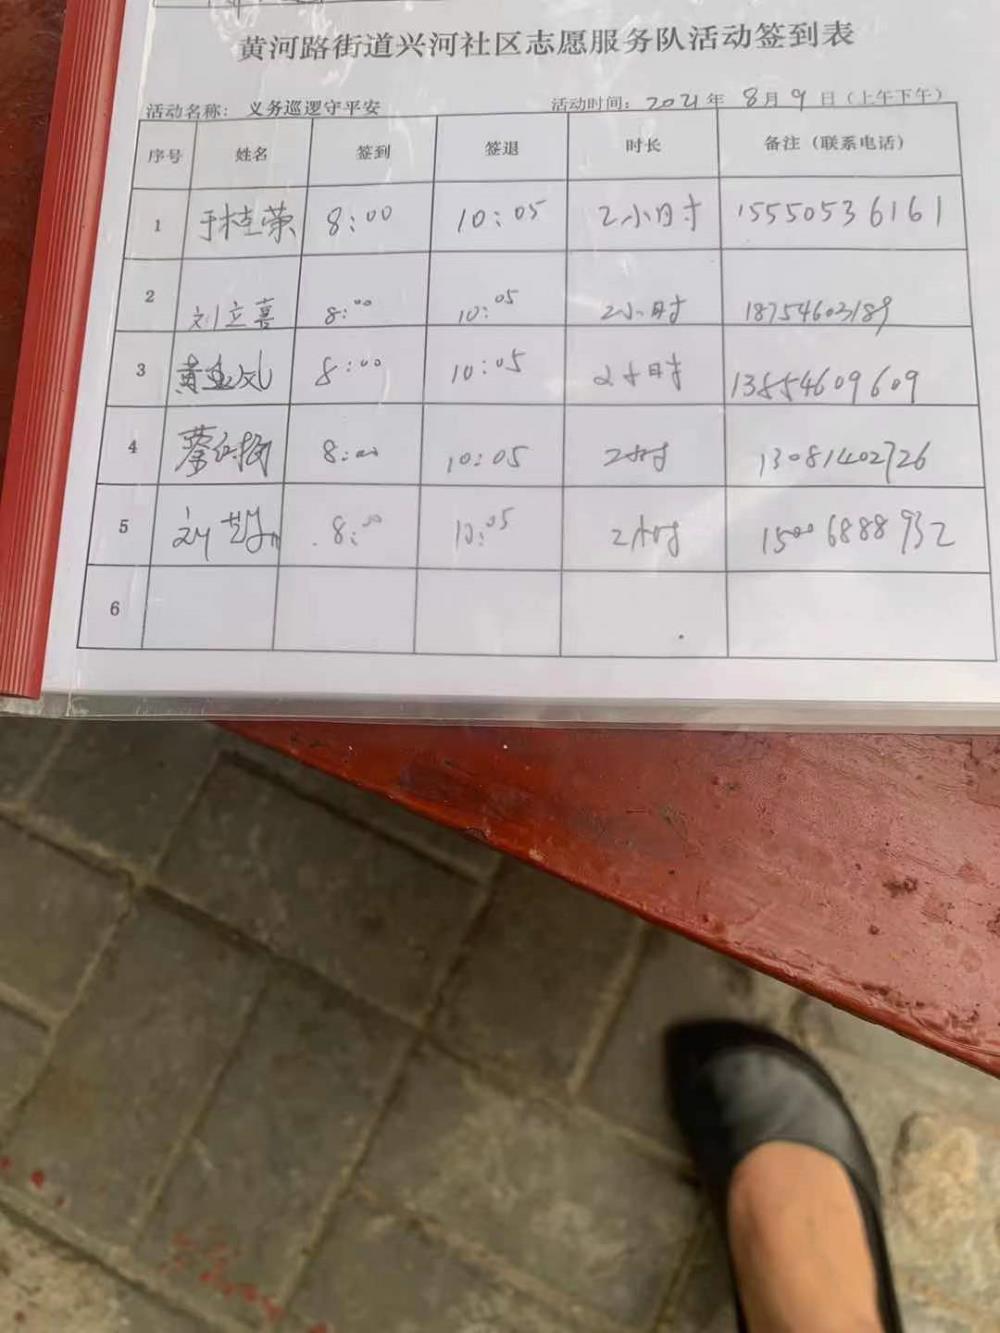 黄河路街道兴河社区志愿服务队活动签到表
活动名称: 义务巡逻守平安 活动时间: 2021年 8月 9 日（上午下午）
序号 姓名 签到 签退 时长 备注（联系电话）
1 于桂荣 8:00 10:05 2小时 15550536161
2 刘立喜 8:00 10:05 2小时 18754603189
3 黄 凤 8:00 10:05 2小时 13854609609
4 蔡 8:00 10:05 2小时 13081402726
5 刘 8:00 10:05 2小时 15006888932
6